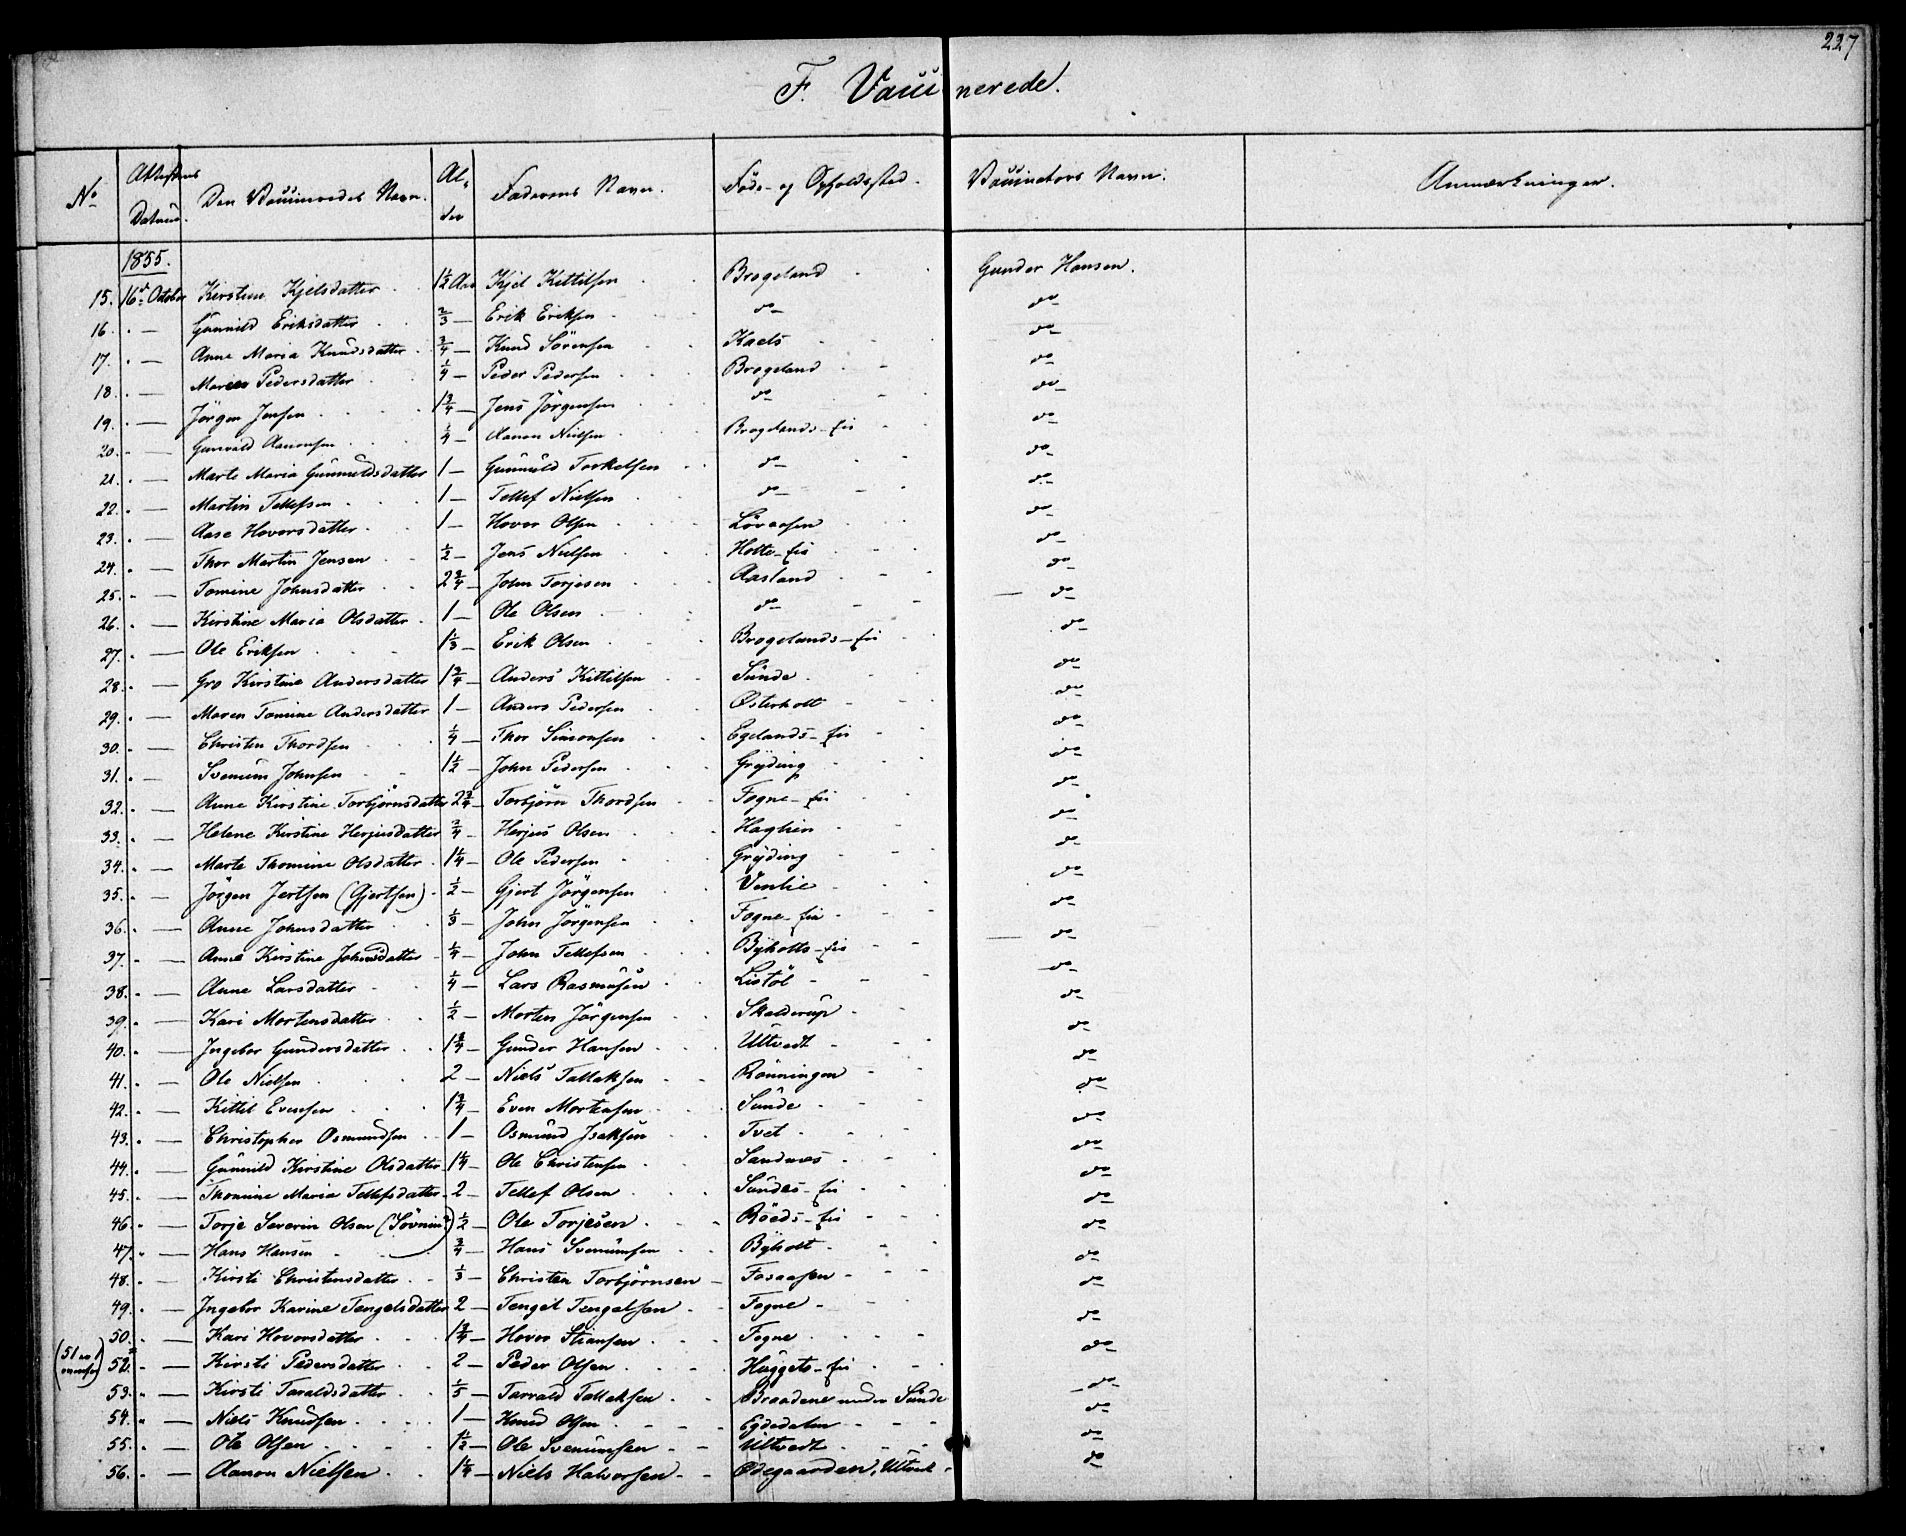 227
F. Vaccinerede.
No | Attestens Datum. | Den Vaccineredes Navn. | Alder | Faderens Navn. | Føde- og Opholdssted. | Vaccinators Navn. | Anmærkninger.
1855.
15. 16d October Kirstine Kjelsdatter 1½ Aar Kjel Kittilsen Brogeland Gunder Hansen.
16. " — Gunnild Eriksdatter ⅔ — Erik Eriksen do do
17. " — Anne Maria Knudsdatter ¾ — Knud Sørensen Kaels do
18. " — Maren Pedersdatter ¼ — Peder Pedersen Brogeland do
19. " — Jörgen Jensen 1¾ — Jens Jörgensen do do
20. " — Gunvald Aanonsen ¼ — Aanon Nielsen Brogelands-Eie do
21. " — Marte Maria Gunnuldsdatter 1 — Gunnuld Torkelsen do do
22. " — Martin Tellefsen 1 — Tellef Nielsen do do
23. " — Aase Hovorsdatter 1 — Hovor Olsen Lövaasen do
24. " — Thor Martin Jensen ½ — Jens Nielsen Holte-Eie do
25. " — Tomine Johnsdatter 2¾ — John Torjesen Aasland do
26. " — Kirstine Maria Olsdatter 1 — Ole Olsen do do
27. " — Ole Eriksen 1⅓ — Erik Olsen Brogelands-Eie do
28. " — Gro Kirstine Andersdatter 1¾ — Anders Kittilsen Sunde do
29. " — Maren Tomine Andersdatter 1 — Anders Pedersen Østerholt do
30. " — Christen Thordsen ¼ — Thor Simonsen Egelands-Eie do
31. " — Svenum Johnsen 1½ — John Pedersen Gryding do
32. " — Anne Kirstine Torbjörnsdatter 2¾ — Torbjörn Thordsen Fogne-Eie do
33. " — Helene Kirstine Herjusdatter ¾ — Herjus Olsen Haghin do
34. " — Marte Thomine Olsdatter 1¼ — Ole Pedersen Gryding do
35. " — Jörgen Jertsen (Gjertsen) ½ — Gjert Jörgensen Venlie do
36. " — Anne Johnsdatter ⅓ — John Jörgensen Fogne-Eie do
37. " — Anne Kirstine Johnsdatter ¼ — John Tellefsen Byholts-Eie do
38. " — Anne Larsdatter ¼ — Lars Rasmusen Listöl do
39. " — Kari Mortensdatter ½ — Morten Jörgensen Skalderup do
40. " — Ingebor Gundersdatter 1¾ — Gunder Hansen Ultvedt do
41. " — Ole Nielsen 2 — Niels Tallaksen Rönningen do
42. " — Kittil Evensen 1¾ — Even Mortensen Sunde do
43. " — Christopher Osmundsen 1 — Osmund Isaksen Tvet do
44. " — Gunnild Kirstine Olsdatter 1¼ — Ole Christensen Sandnes do
45. " — Thomine Maria Tellefsdatter 2 — Tellef Olsen Sundes-Eie do
46. " — Torje Severin Olsen (Sövnin?) ½ — Ole Torjesen Röeds-Eie do
47. " — Hans Hansen ¾ — Hans Svenumsen Byholt do
48. " — Kirsti Christensdatter ⅓ — Christen Torbjörnsen Fosaasen do
49. " — Ingebor Karine Tengelsdatter 2 — Tengel Tengelsen Fogne do
50. " — Kari Hovorsdatter 1¾ — Hovor Stiansen Fogne do
(51 No) 52. " — Kirsti Pedersdatter 2 — Peder Olsen Huggets-Eie do
53. " — Kirsti Taraldsdatter ⅕ — Tarrald Tallaksen Braadene under Sunde do
54. " — Niels Knudsen 1 — Knud Olsen Egdedalen do
55. " — Ole Olsen 1½ — Ole Svenumsen Ultvedt do
56. " — Aanon Nielsen 1¼ — Niels Halvorsen Ødegaarden, Ultvedt do